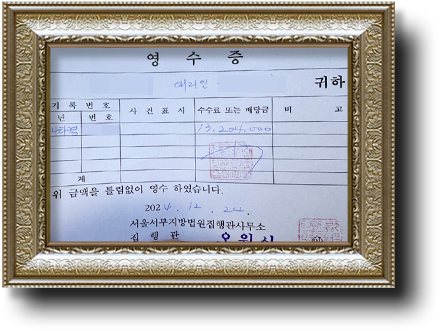 영 수 증
대리인 귀하
기 록 번 호 사 건 표 시 수수료 또는 배당금 비 고
년 번 호
13,204,000
계
위 금액을 틀림없이 영수 하였습니다.
2024. 12. 24.
서울서부지방법원집행관사무소
집 행 관